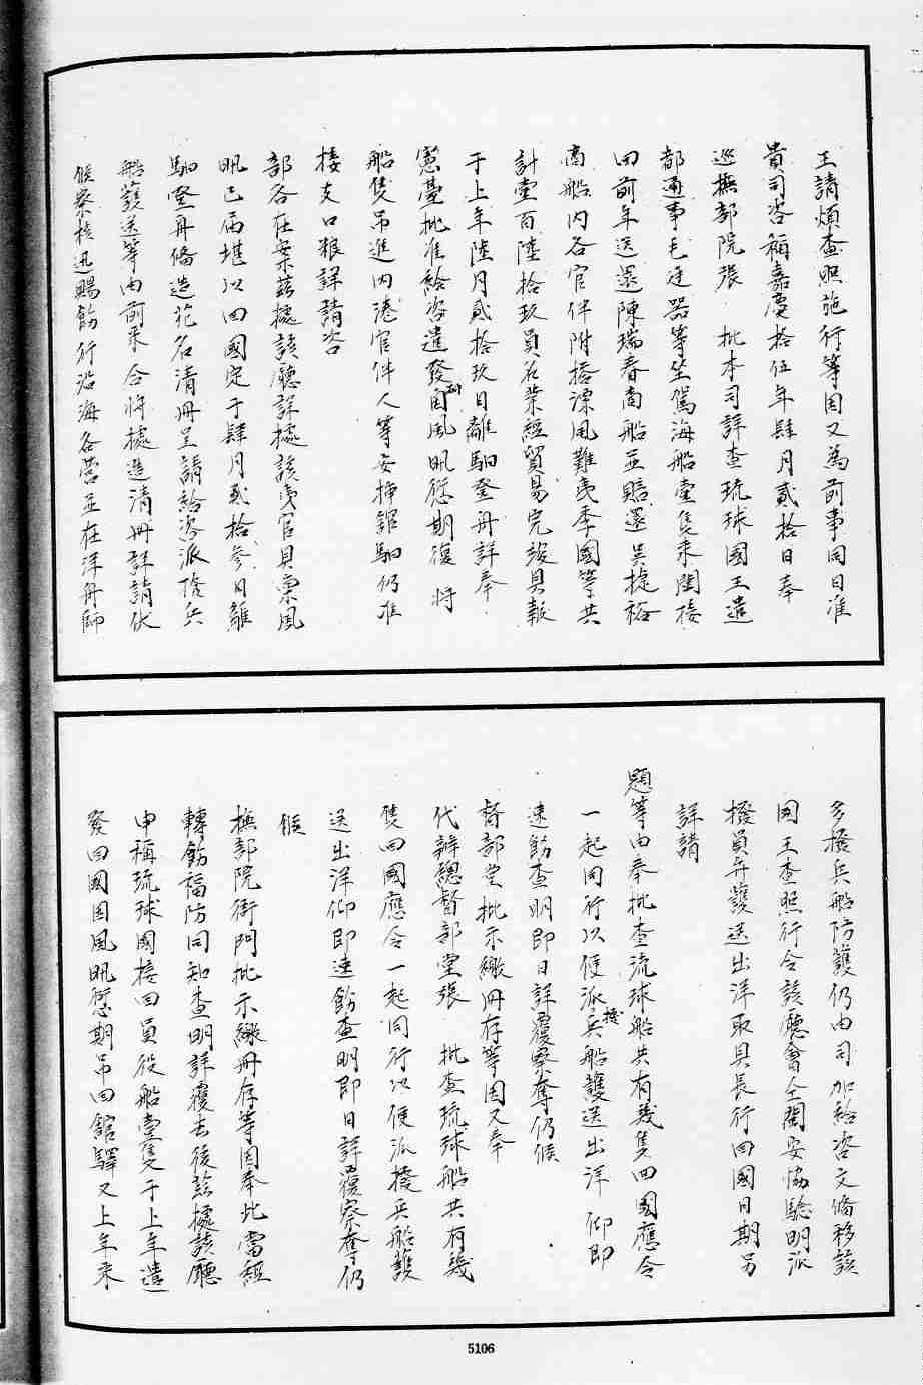 王請煩查照施行等因又為前事同日准
貴司咨稱嘉慶拾伍年肆月貳拾日奉
巡撫部院張 批本司詳查琉球國王遣
都通事毛廷器等坐駕海船壹隻來閩接
回前年送還陳瑞春商船並賠還吳捷裕
商船內各官伴附搭漂風難夷季國等共
計壹百陸拾玖員名業經貿易完竣具報
于上年陸月貳拾玖日離驛登舟詳奉
憲臺批准給咨遣發回國因風帆愆期復將
船隻吊進內港官伴人等安插館驛仍准
接支口粮詳請咨
部各在案茲據該廳詳據該夷官具稟風
帆已屆堪以回國定于肆月貳拾參日離
驛登舟俻造花名清冊呈請給咨派撥兵
船護送等由前來合將據造清冊詳請伏
候察核迅賜飭行沿海各營並在洋舟師
多撥兵船防護仍由司加給咨文俻移該
國王查照行令該廳會仝閩安協驗明派
撥員弁護送出洋取具長行回國日期另
詳請
題等由奉批查流球船共有幾隻回國應令
一起同行以便派撥兵船護送出洋仰即
速飭查明即日詳覆察奪仍候
督部堂批示繳冊存等因又奉
代辦總督部堂張 批查琉球船共有幾
隻回國應令一起同行以便派撥兵船護
送出洋仰即速飭查明即日詳覆察奪仍
候
撫部院衙門批示繳冊存等因奉此當經
轉飭福防同知查明詳覆去後茲據該廳
申稱琉球國接回員役船壹隻于上年遣
發回國因風帆愆期吊回館驛又上年來
5106